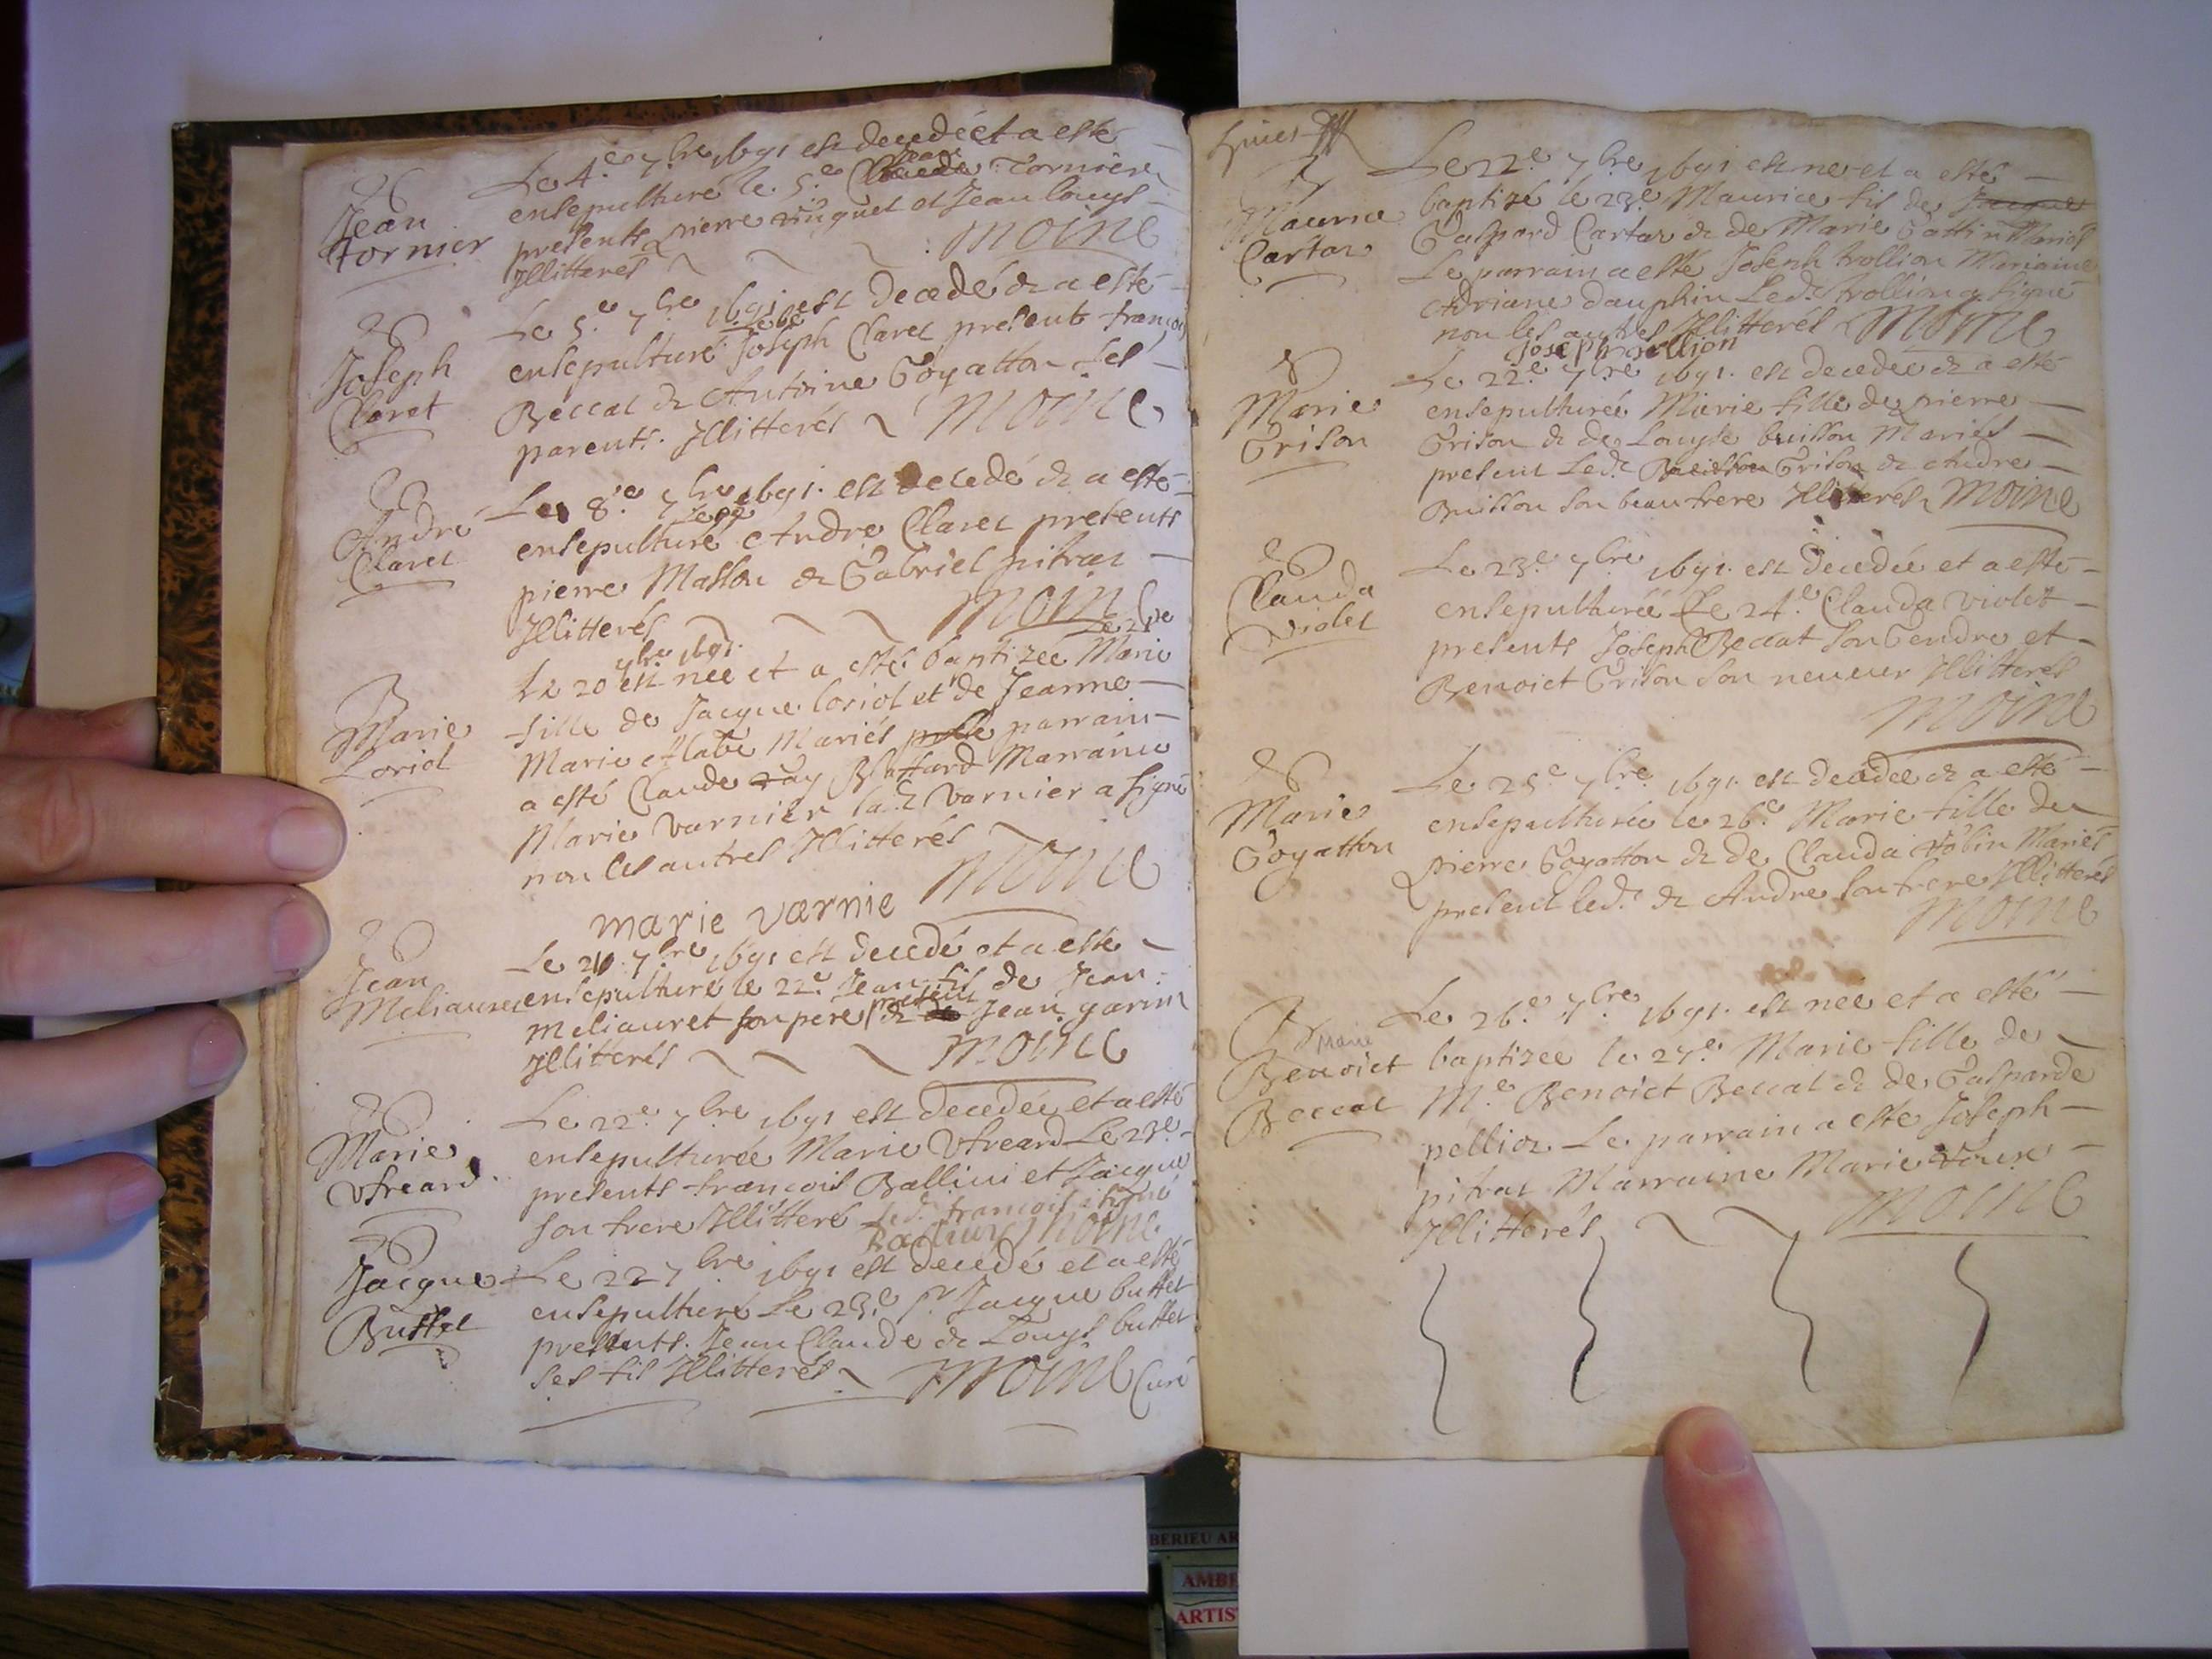 Jean
tornier
Le 4.e 7.bre 1691 est decedé et a esté
ensepulturé le 5.e Jean Tornier
presents pierre et Jean louys
Illitterés moine
Joseph
Claret
Le 5.e 7.bre 1691 est decedé & a esté
le 6e
ensepulturé Joseph Claret presents françois
Beccat & Antoine Goyatton ses
parents. Illitterés moine
André
Claret
Le 8.e 7.bre 1691. est decedé & a esté
le 9e
ensepulturé Andre Claret presents
pierre Masson & Gabriel pitrat
Illitterés moin
Marie
Loriol
7.bre 1691. Le 21e
Le 20 est née et a esté baptizée Marie
fille de Jacque loriol et de Jeanne
Marie Mariés parrain
a esté Claude Marraine
Marie varnier lad.e varnier a signé
non les autres Illitterés
moine
marie varnie
Jean
Meliauret
Le 21 7.bre 1691 est decedé et a esté
ensepulturé le 22.e Jean fils de Jean
meliauret son pere present & Jean garin
Illitterés moine
Marie
Vfreard
Le 22.e 7.bre 1691 est decedée et a esté
ensepulturée Marie Vfreard Le 23e
presents françois Ballini et Jacque
son frere Illitteré Led. françois a signé
moine
Jacque
Buffet
Le 22 7.bre 1691 est decedé et a esté
ensepulturé Le 23.e sr Jacque buffet
presents. Jean Claude & Louys buffet
ses fils Illitterés moine Curé
Maurice
Cartar
Le 22.e 7.bre 1691. est né et a esté
baptizé le 23.e Maurice fils de Jacque
Gaspard Cartar & de Marie Gattin Mariés
Le parrain a esté Joseph trollion Marraine
Adriane dauphin Led. trollion a signé
non les autres Illitterés moine
Joseph trollion
Marie
Grison
Le 22.e 7.bre 1691. est decedée & a esté
ensepulturée Marie fille de pierre
Grison & de Louyse buisson Mariés
present Led. Buisson Grison & Andre
Buisson son beau frere Illitterés moine
Clauda
violet
Le 23.e 7.bre 1691. est decedée et a esté
ensepulturée Le 24.e Clauda violet
presents Joseph Beccat son Gendre et
Benoict Grison son neueur Illitterés
moine
Marie
Goyatton
Le 25.e 7.bre 1691. est decedée & a esté
ensepulturée le 26.e Marie fille de
pierre Goyatton & de Clauda Mariés
present led. & Andre son frere Illitterés
moine
Marie
Benoict
Beccat
Le 26.e 7.bre 1691. est née et a esté
baptizée le 27.e Marie fille de
M.e Benoict Beccat & de Gasparde
pellior Le parrain a esté Joseph
pitrat Marraine Marie
Illitterés moine
BERIEU AR
AMBE
ARTIS